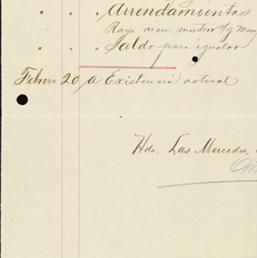 " " Arrendamientos
Raya de un mes
" " Saldo para igualar
Febrero 20, A Existencia actual
Hda. Las Mercedes,